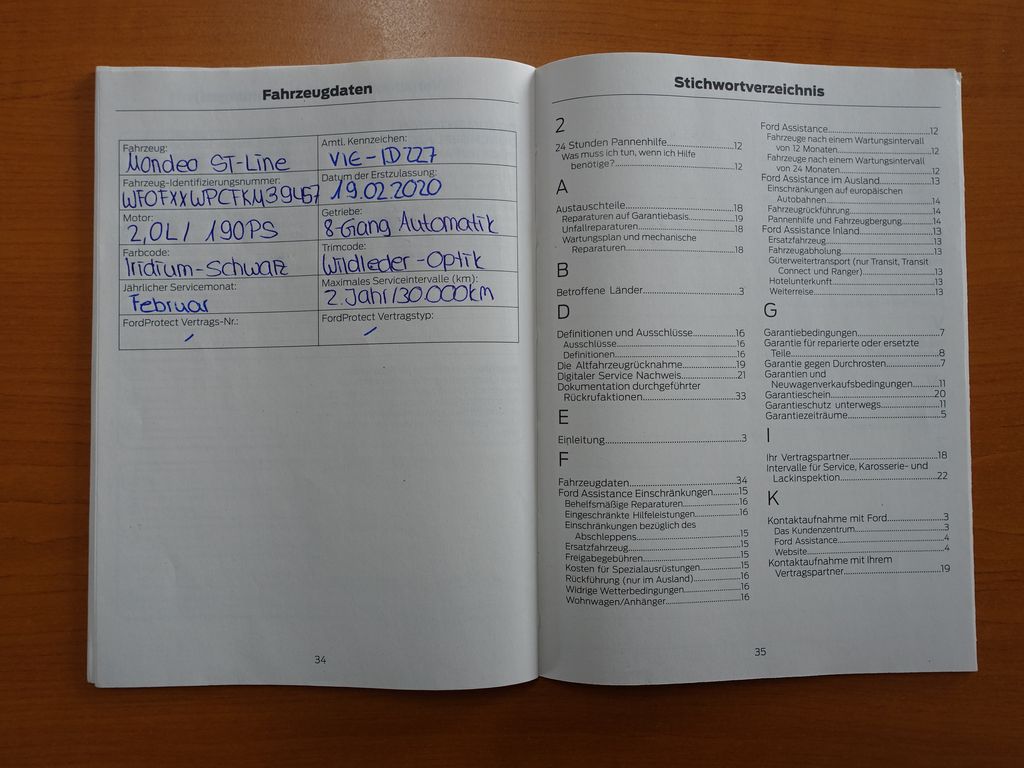 Fahrzeugdaten
Fahrzeug:
Mondeo ST-Line
Amtl. Kennzeichen:
VIE-ID227
Fahrzeug-Identifizierungsnummer:
WFOFXXWPCFKM39457
Datum der Erstzulassung:
19.02.2020
Motor:
2,0L / 190PS
Getriebe:
8-Gang Automatik
Farbcode:
Iridium-Schwarz
Trimcode:
Wildleder-Optik
Jährlicher Servicemonat:
Februar
Maximales Serviceintervalle (km):
2.Jahr/30.000km
FordProtect Vertrags-Nr.:
FordProtect Vertragstyp:
34
Stichwortverzeichnis
2
24 Stunden Pannenhilfe...12
Was muss ich tun, wenn ich Hilfe
benötige?...12
A
Austauschteile...18
Reparaturen auf Garantiebasis...19
Unfallreparaturen...18
Wartungsplan und mechanische
Reparaturen...18
B
Betroffene Länder...3
D
Definitionen und Ausschlüsse...16
Ausschlüsse...16
Definitionen...16
Die Altfahrzeugrücknahme...19
Digitaler Service Nachweis...21
Dokumentation durchgeführter
Rückrufaktionen...33
E
Einleitung...3
F
Fahrzeugdaten...34
Ford Assistance Einschränkungen...15
Behelfsmäßige Reparaturen...16
Eingeschränkte Hilfeleistungen...16
Einschränkungen bezüglich des
Abschleppens...15
Ersatzfahrzeug...15
Freigabegebühren...15
Kosten für Spezialausrüstungen...15
Rückführung (nur im Ausland)...16
Widrige Wetterbedingungen...16
Wohnwagen/Anhänger...16
Ford Assistance...12
Fahrzeuge nach einem Wartungsintervall
von 12 Monaten...12
Fahrzeuge nach einem Wartungsintervall
von 24 Monaten...12
Ford Assistance im Ausland...13
Einschränkungen auf europäischen
Autobahnen...14
Fahrzeugrückführung...14
Pannenhilfe und Fahrzeugbergung...14
Ford Assistance Inland...13
Ersatzfahrzeug...13
Fahrzeugabholung...13
Güterweitertransport (nur Transit, Transit
Connect und Ranger)...13
Hotelunterkunft...13
Weiterreise...13
G
Garantiebedingungen...7
Garantie für reparierte oder ersetzte
Teile...8
Garantie gegen Durchrosten...7
Garantien und
Neuwagenverkaufsbedingungen...11
Garantieschein...20
Garantieschutz unterwegs...11
Garantiezeiträume...5
I
Ihr Vertragspartner...18
Intervalle für Service, Karosserie- und
Lackinspektion...22
K
Kontaktaufnahme mit Ford...3
Das Kundenzentrum...3
Ford Assistance...4
Website...4
Kontaktaufnahme mit Ihrem
Vertragspartner...19
35